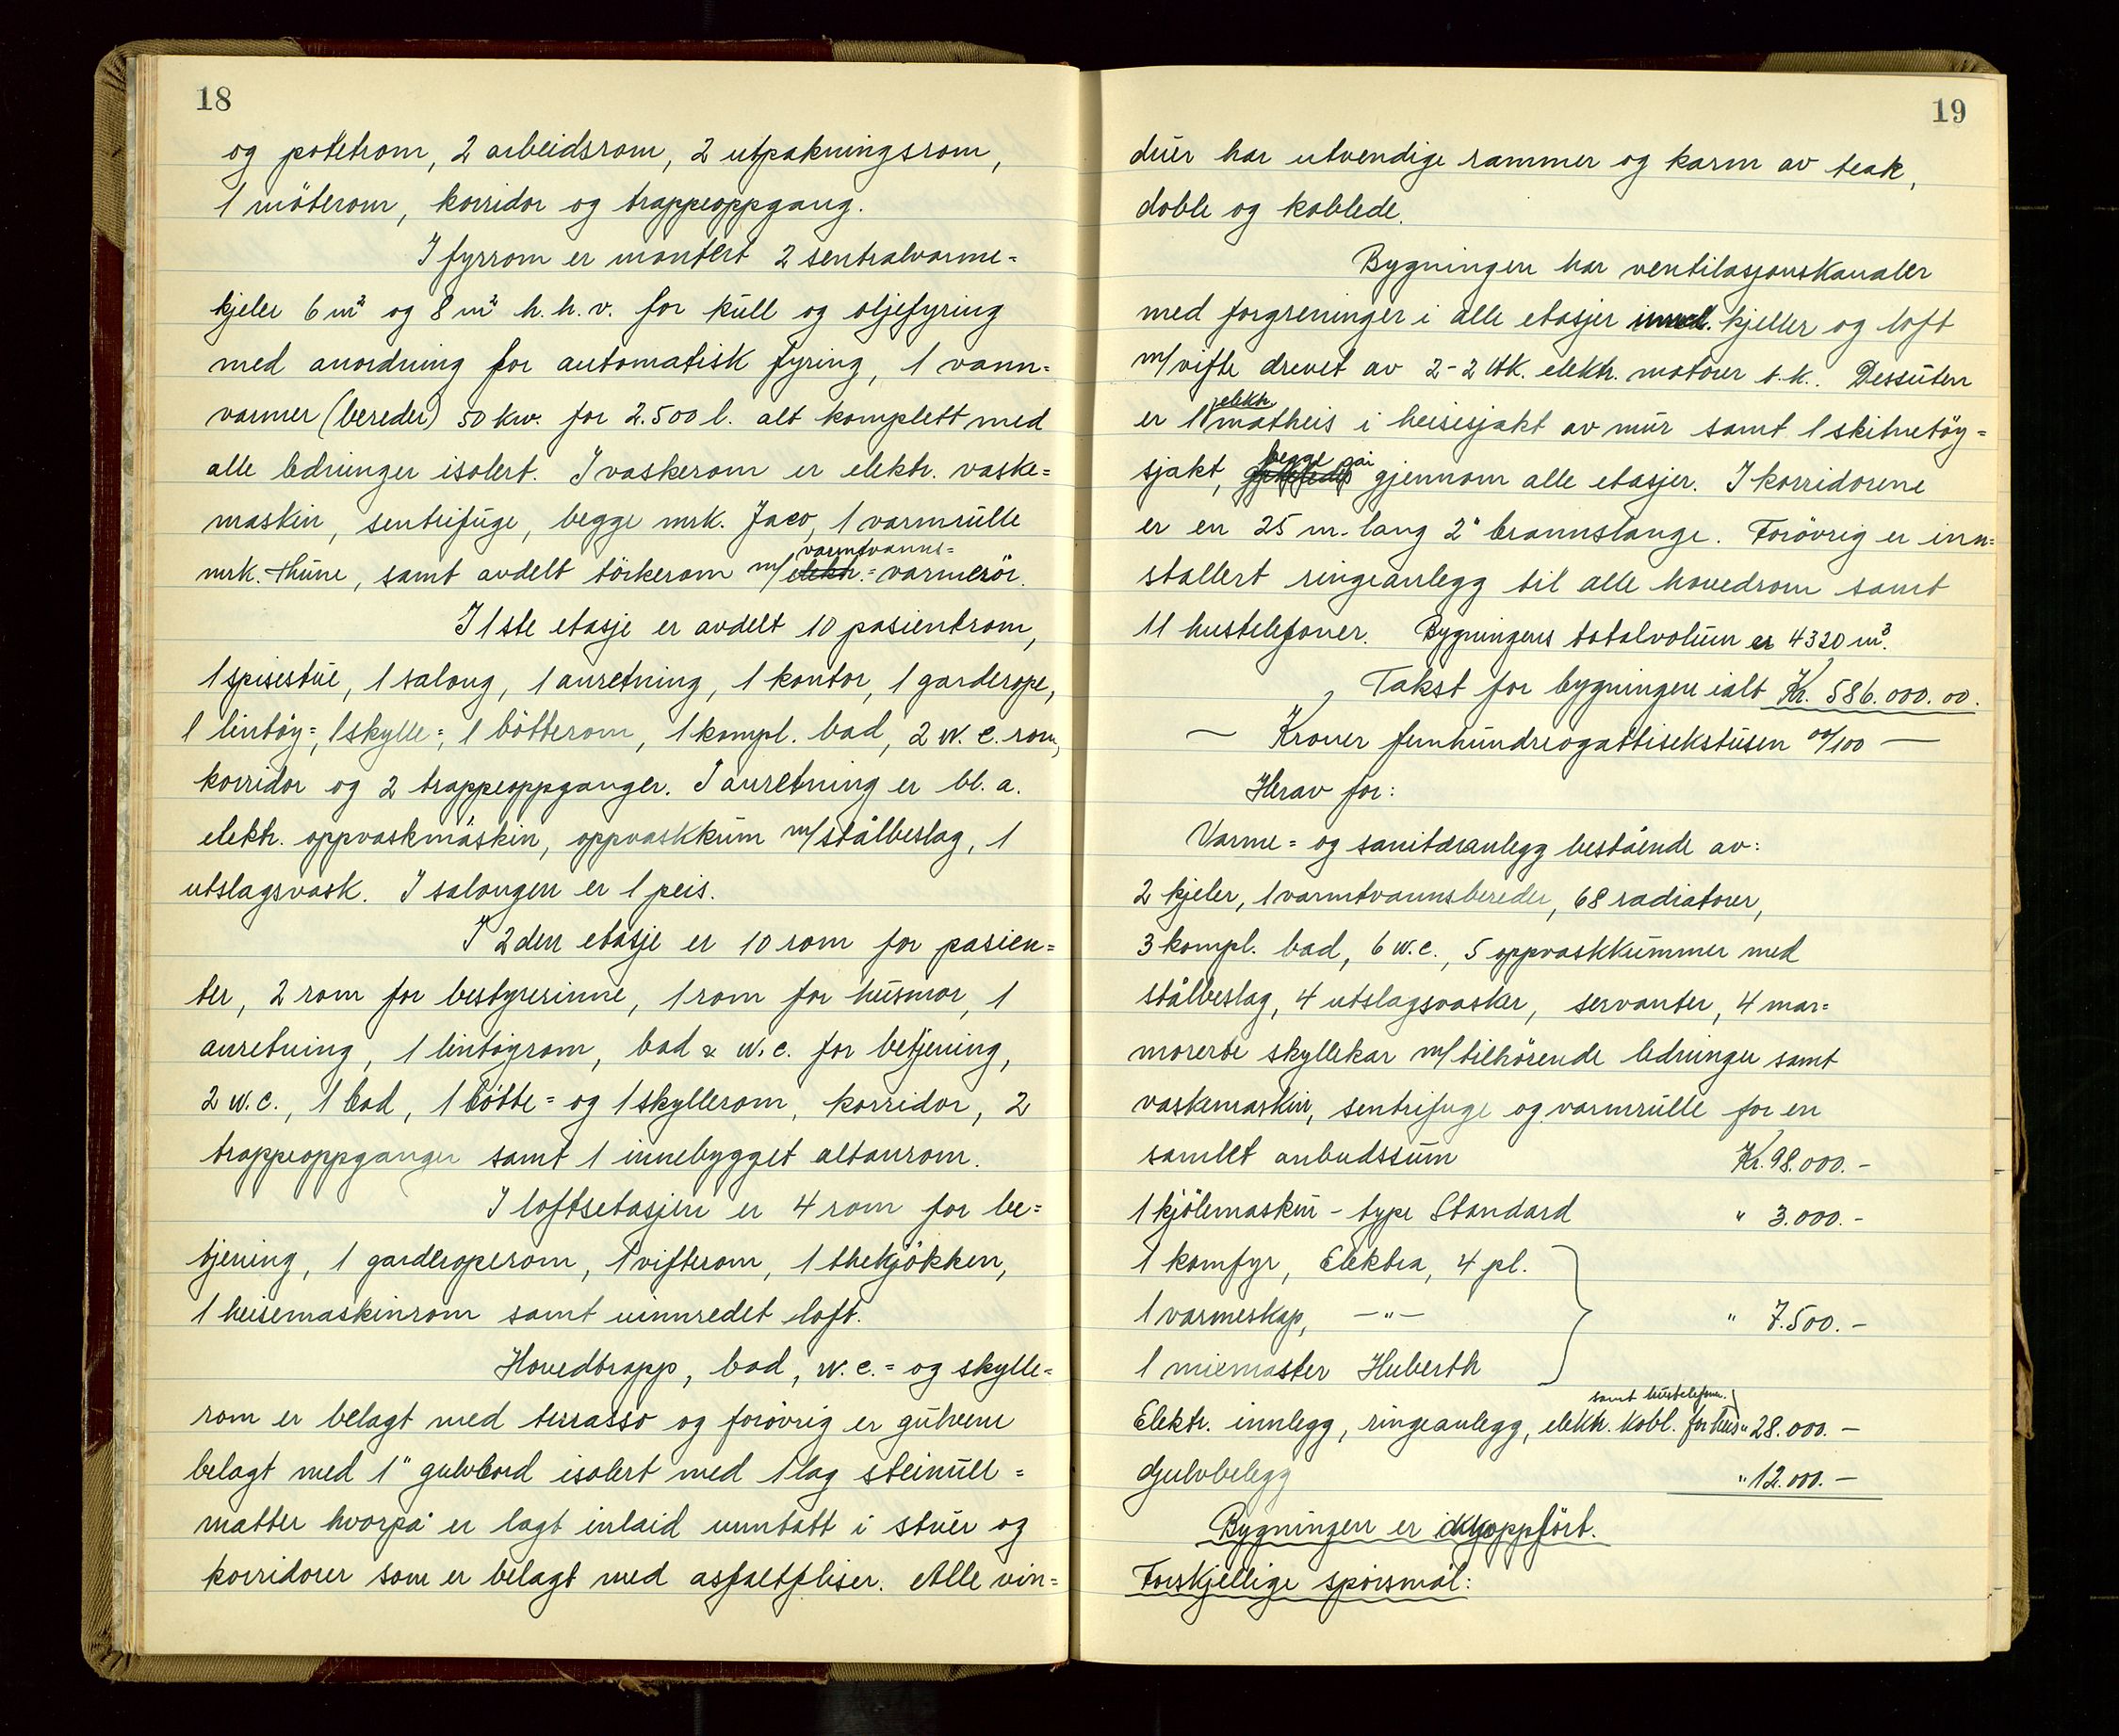 18
og potetrom, 2 arbeidsrom, 2 utpakningsrom,
1 möterom, korridor og trappeoppgang.
I fyrrom er montert 2 sentralvarme=
kjeler 6 m² og 8 m² h.h.v. for kull og oljefyring
med anordning for automatisk fyring, 1 vann=
varmer (bereder) 50 kw. for 2.500 l. alt komplett med
alle ledninger isolert. I vaskerom er elektr. vaske=
maskin, sentrifuge, begge mrk. Jaco, 1 varmrulle
varmtvanns=
mrk. Thune, samt avdelt törkerom m/ elektr.= varmerör.
I 1ste etasje er avdelt 10 pasientrom,
1 spisestue, 1 salong, 1 anretning, 1 kontor, 1 garderope,
1 lintöy=, 1 skylle=, 1 bötterom, 1 kompl. bad, 2 w.c. rom,
korridor og 2 trappeoppganger. I anretning er bl.a.
elektr. oppvaskmaskin, oppvaskkum m/stålbeslag, 1
utslagsvask. I salongen er 1 peis.
I 2den etasje er 10 rom for pasien=
ter, 2 rom for bestyrerinne, 1 rom for husmor, 1
anretning, 1 lintöyrom, bad & w.c. for betjening,
2 w.c., 1 bad, 1 bötte= og 1 skyllerom, korridor, 2
trappeoppganger samt 1 innebygget altanrom.
I loftsetasjen er 4 rom for be=
tjening, 1 garderoperom, 1 vifterom, 1 thekjökken,
1 heisemaskinrom samt uinnredet loft.
Hovedtrapp, bad, w.c.= og skylle=
rom er belagt med terrasso og forövrig er gulvene
belagt med 1" gulvbord isolert med 1 lag steinull=
matter hvorpå er lagt inlaid unntatt i stuer og
korridorer som er belagt med asfaltfliser. Alle vin=
19
duer har utvendige rammer og karm av teak,
doble og koblede.
Bygningen har ventilasjonskanaler
med forgreninger i alle etasjer innkl. kjeller og loft
m/vifte drevet av 2-2 Hk. elektr. motorer t.k. Dessuten
elektr.
er 1 matheis i heisesjakt av mur samt 1 skitnetöy=
begge går
sjakt, gjennom alle etasjer. I korridorene
er en 25 m. lang 2" brannslange. Forövrig er inn=
stallert ringeanlegg til alle hovedrom samt
11 hustelefoner. Bygningens totalvolum er 4320 m³.
Takst for bygningen ialt Kr. 586.000.00.
— Kroner femhundreogåttisekstusen 00/100 —
Herav for:
Varme= og sanitæranlegg bestående av:
2 kjeler, 1 varmtvannsbereder, 68 radiatorer,
3 kompl. bad, 6 w.c., 5 oppvaskkummer med
stålbeslag, 4 utslagsvasker, servanter, 4 mar=
morerte skyllekar m/tilhörende ledninger samt
vaskemaskin, sentrifuge og varmrulle for en
samlet anbudssum Kr. 98.000.-
1 kjölemaskin - type Standard " 3.000.-
1 komfyr, Elektra, 4 pl.
1 varmeskap, —"— " 7.500.-
1 mixmaster Huberth
samt hustelefoner.
Elektr. innlegg, ringeanlegg, elektr. kobl. for heis " 28.000.—
Gulvbelegg " 12.000.—
Bygningen er oppfört.
Forskjellige spörsmål: